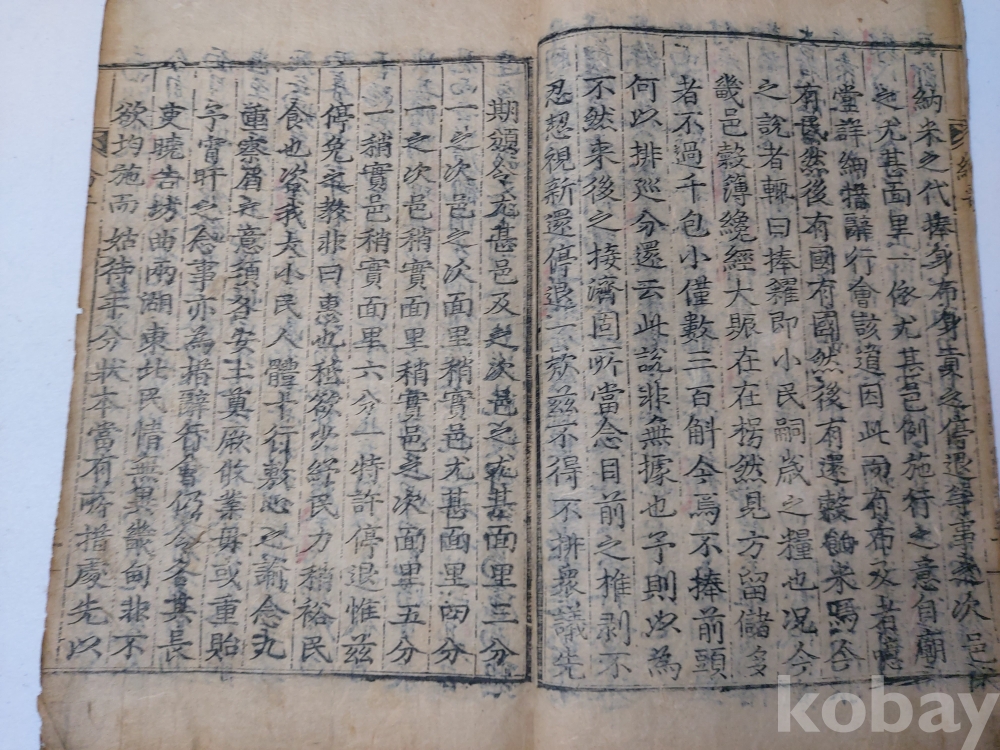 納米之代捧身布身東之停退等事之次邑
之尤甚面里一依尤甚邑例施行之意自廟
堂詳細措辭行會該道因此而有布及者噫
有民然後有國有國然後有還穀餉米焉今
之說者輒曰捧糴卽小民嗣歲之糧也況今
畿邑穀簿纔經大賑在在枵然見方留儲多
者不過千包小僅數三百斛今焉不捧前頭
何以排巡分還云此說非無據也予則以為
不然來後之接濟固所當念目前之椎剥不
忍恝視新還停退一款玆不得不排衆議先
期頒令尤甚邑及之次邑之尤甚面里三分
一之次邑之次面里稍實邑尤甚面里四分
一之次邑稍實面里稍實邑之次面里五分
一稍實邑稍實面里六分一特許停退惟玆
停免之敎非曰惠也秪欲少紓民力稍裕民
食也咨我大小民人體予行敷心之諭念九
重察眉之意須各安土奠厥攸業毋或重貽
予宵旰之念事亦為措辭行會仍令各其長
吏曉告坊曲兩湖東北民情無異畿甸非不
欲均施而姑待年分狀本當有所措處先以
kobay